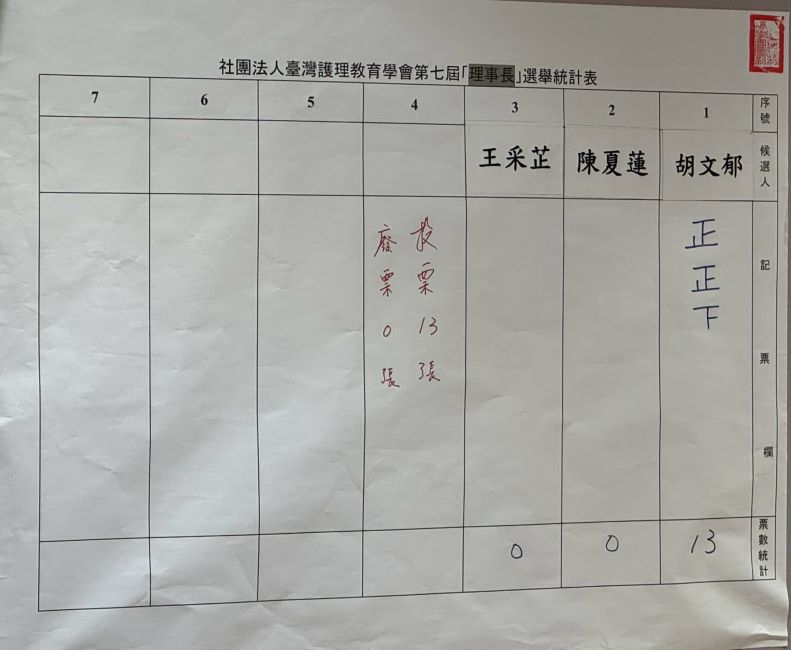 社團法人臺灣護理教育學會第七屆「理事長」選舉統計表
7 6 5 4 3 2 1 序號
王采芷 陳夏蓮 胡文郁 候選人
正
正
下
記票欄
投票13張
廢票0張
0 0 13 票數統計